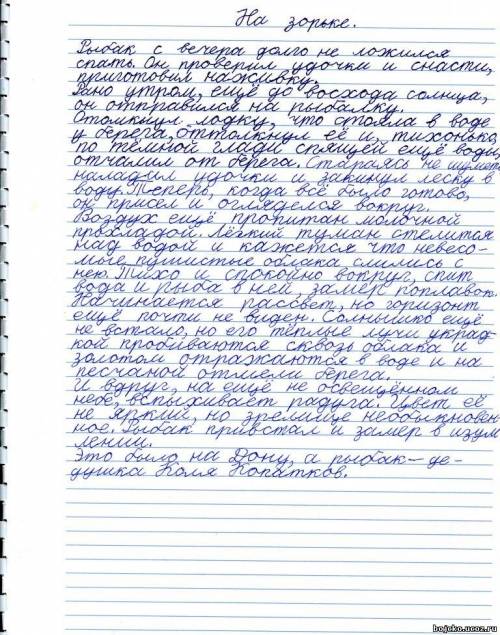 На зорьке.
Рыбак с вечера долго не ложился
спать. Он проверил удочки и снасти,
приготовил наживку.
Рано утром, ещё до восхода солнца,
он отправился на рыбалку.
Отомкнул лодку, что стояла в воде
у берега, оттолкнул её и, тихонько,
по тёмной глади спящей ещё воды,
отчалил от берега. Стараясь не шуметь
наладил удочки и закинул леску в
воду. Теперь, когда всё было готово,
он присел и огляделся вокруг.
Воздух ещё пропитан молочной
прохладой. Лёгкий туман стелится
над водой и кажется что невесо-
мые пушистые облака слились с
нею. Тихо и спокойно вокруг, спит
вода и рыба в ней, замер поплавок.
Начинается рассвет, но горизонт
ещё почти не виден. Солнышко ещё
не встало, но его тёплые лучи украд-
кой пробиваются сквозь облака и
золотом отражаются в воде и на
песчаной отмели берега.
И вдруг, на ещё не освещённом
небе, вспыхивает радуга. Цвет её
не яркий, но зрелище необыкновен-
ное. Рыбак привстал и замер в изум
лении.
Это было на Дону, а рыбак - де-
душка Коля Копатков.
bojoko.ucoz.ru